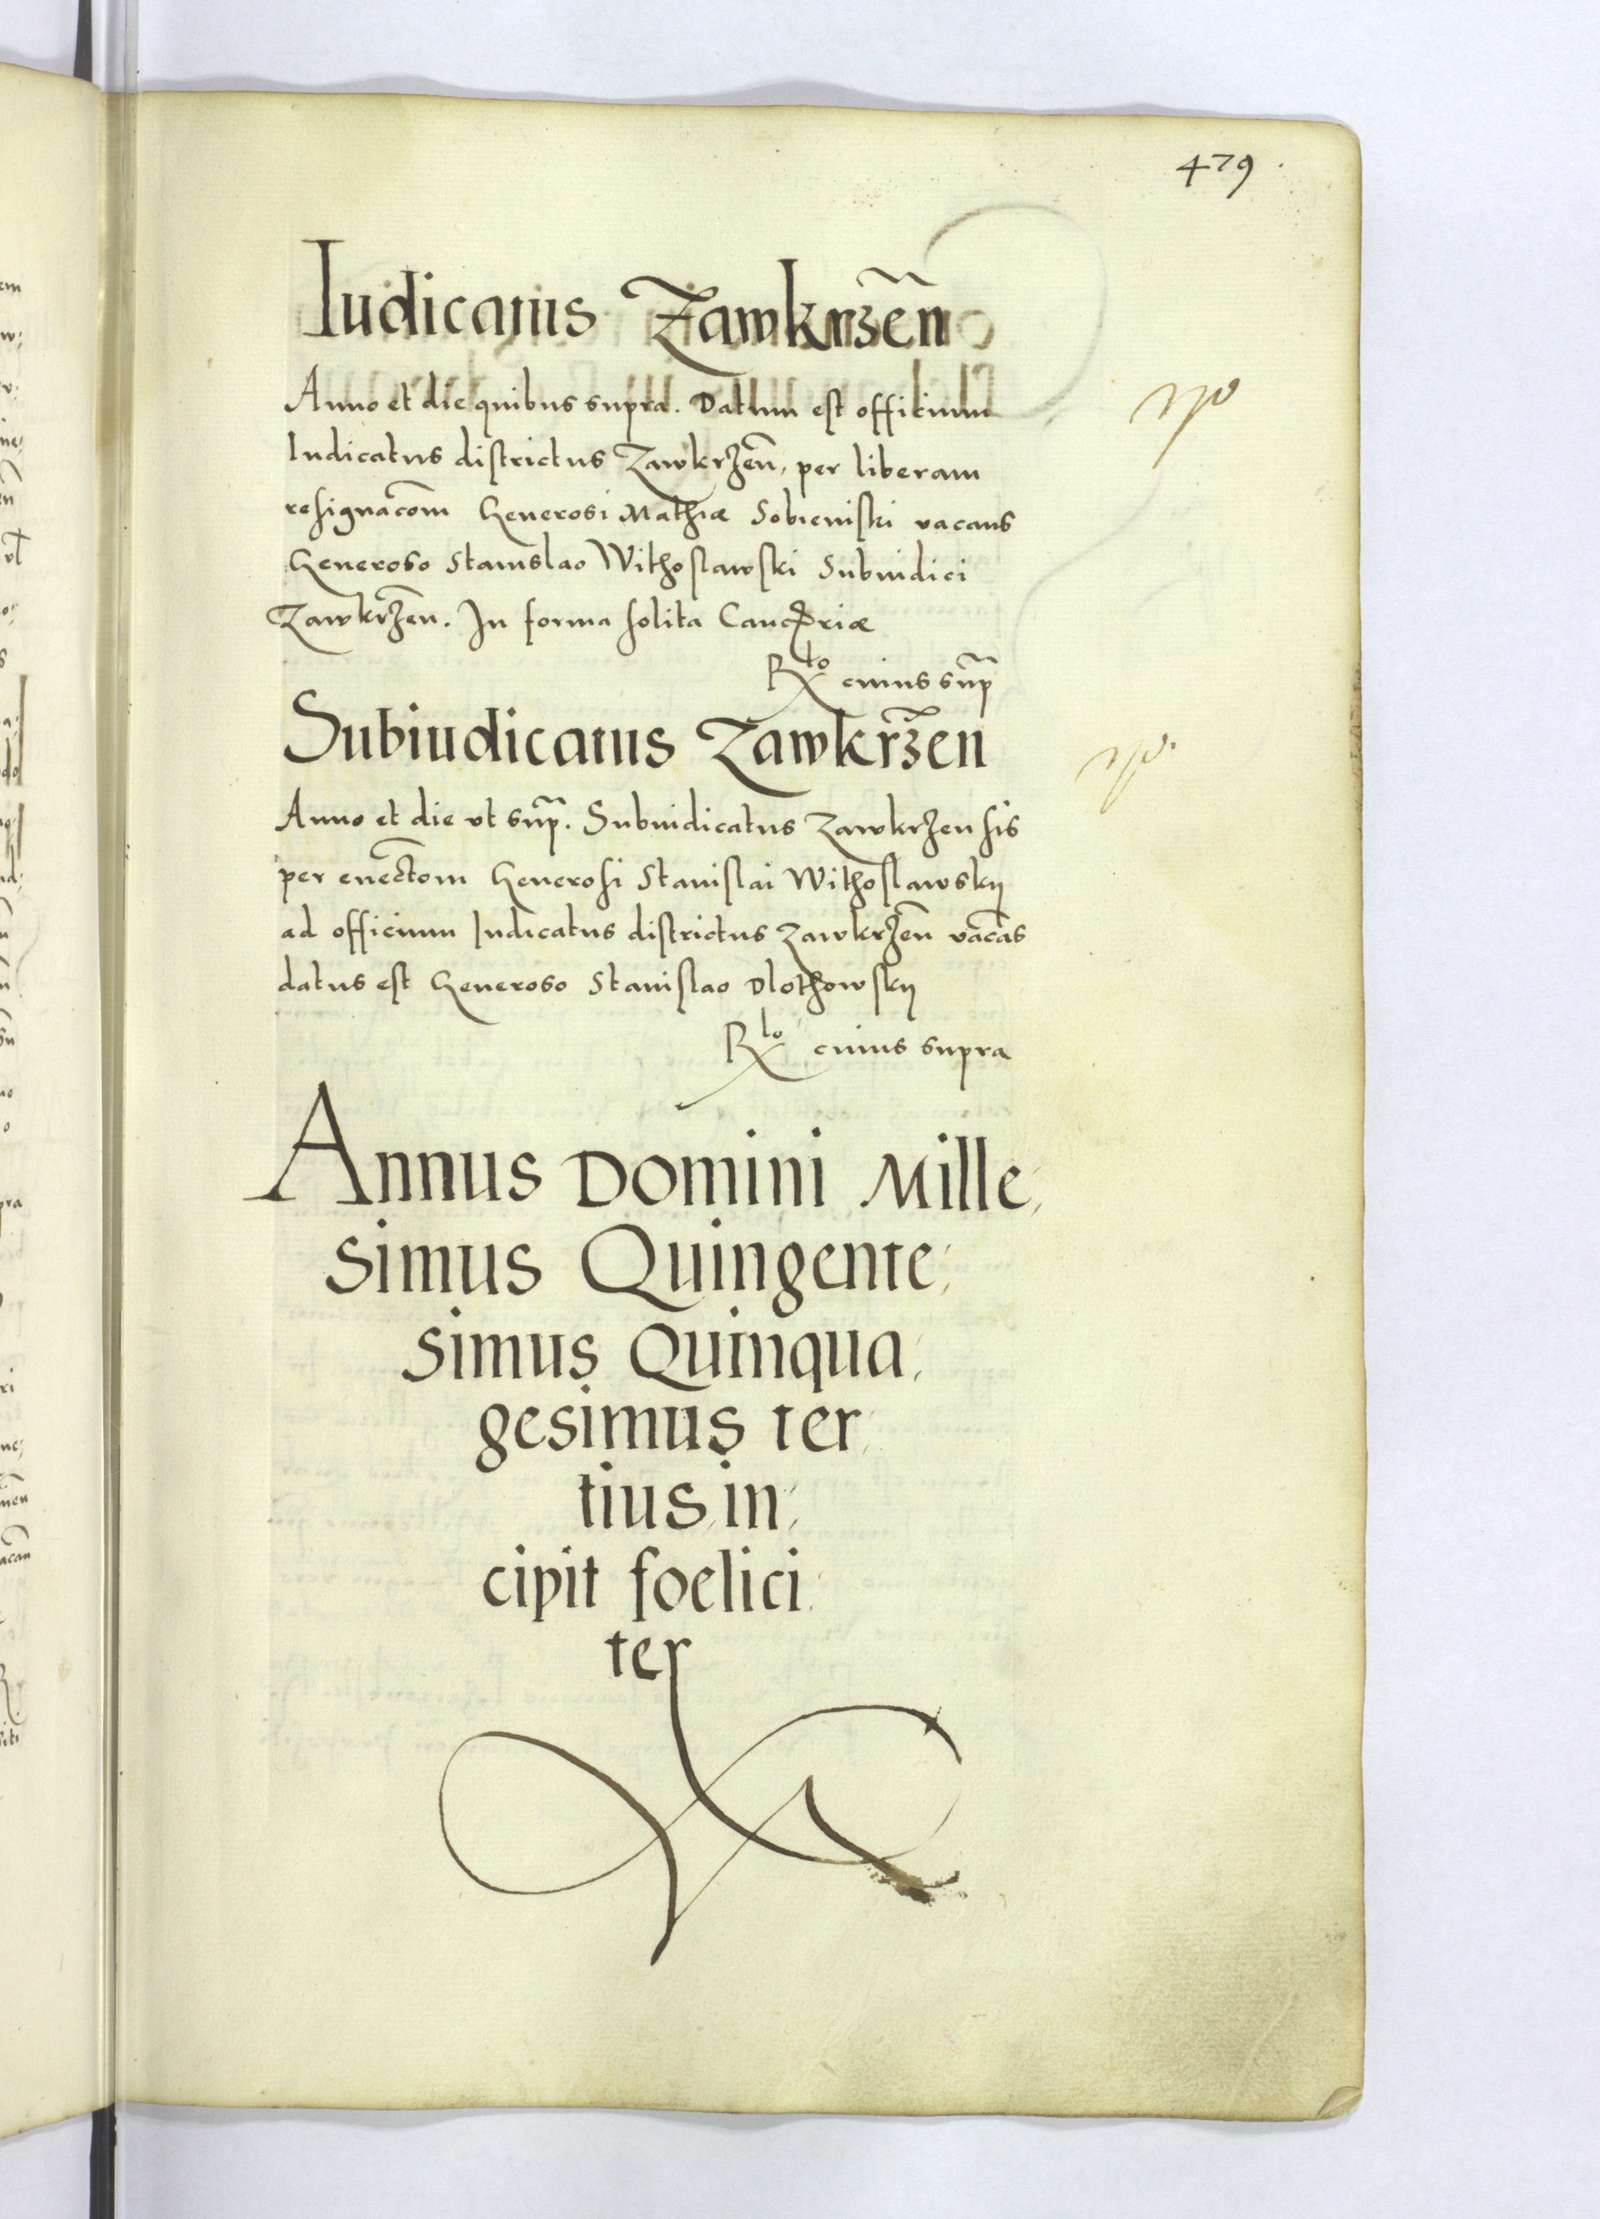 479
Iudicatus Zawkrzēn
Anno et die quibus supra. Datum est officium
Iudicatus districtus Zawkrzēn, per liberam
resignacōm Generosi Mathiæ Sobieniski vacans
Generoso Stanislao Withoslawski Subiudici
Zawkrzēn. In forma solita Cancỻriæ
Rꝭto cuius sup̄
Subiudicatus Zawkrzēn
Anno et die vt sup̄. Subiudicatus Zawkrzensis
per euectōm Generosi Stanislai Withoslawskij
ad officium Iudicatus districtus Zawkrzēn vacās
datus est Generoso Stanislao Dlothowskij
cuius supra
Annus Domini Mille,
simus Quingente,
simus Quinqua,
gesimus ter,
tius in,
cipit foelici,
ter